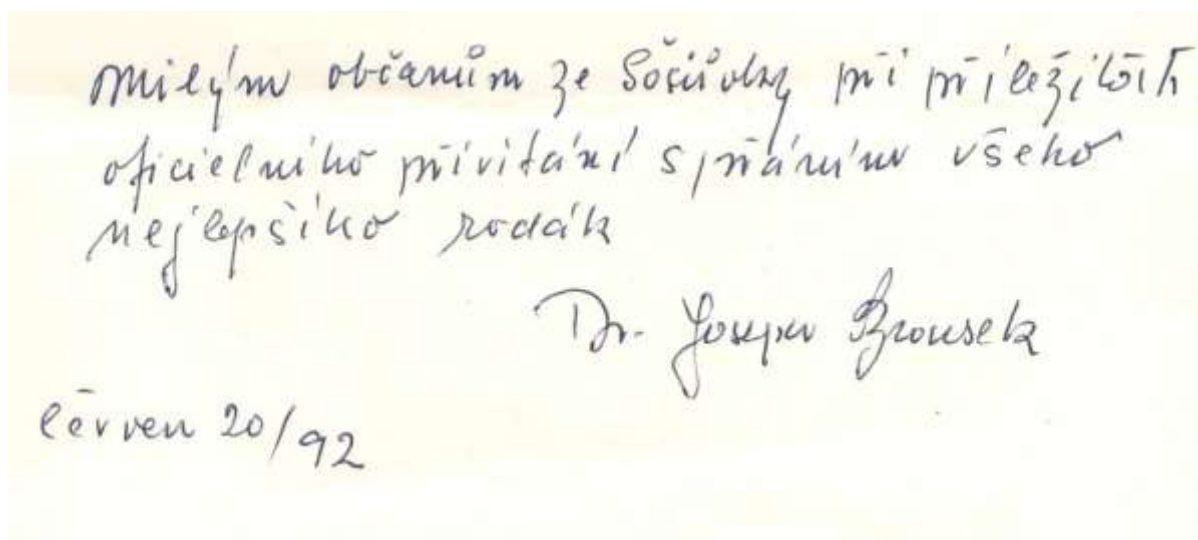 Milým občanům ze při příležitosti
oficielního přivitání s přáním všeho
nejlepšího rodák
Dr. Joseph Brousek
červen 20/92